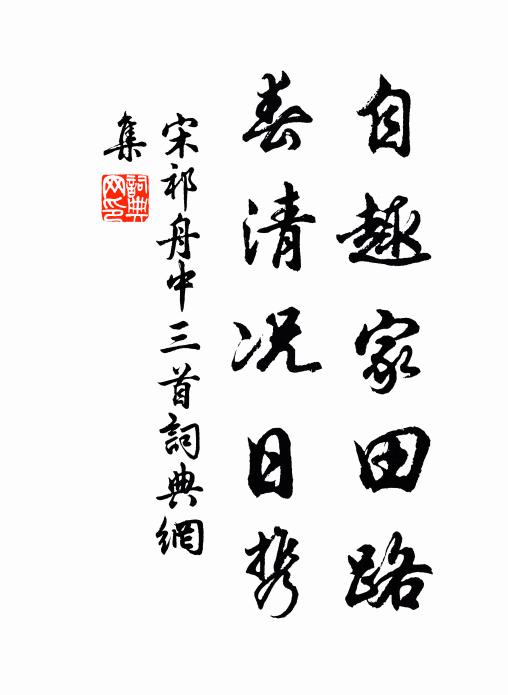 自趣家田路
春清况日携
宋祁舟中三首詞典網
集
詞典網印